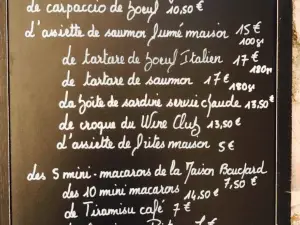 de carpaccio de boeuf 10,50 €
d'assiette de saumon fumé maison 15 €
100gr
de tartare de boeuf Italien 17 €
180gr
de tartare de saumon 17 €
180gr
la boîte de sardine servie chaude 13,50 €
de croque du Wine Club 13,50 €
d'assiette de frites maison 5 €
des 5 mini-macarons de la Maison Bouchard
7,50 €
des 10 mini macarons 14,50 €
de Tiramisu café 7 €